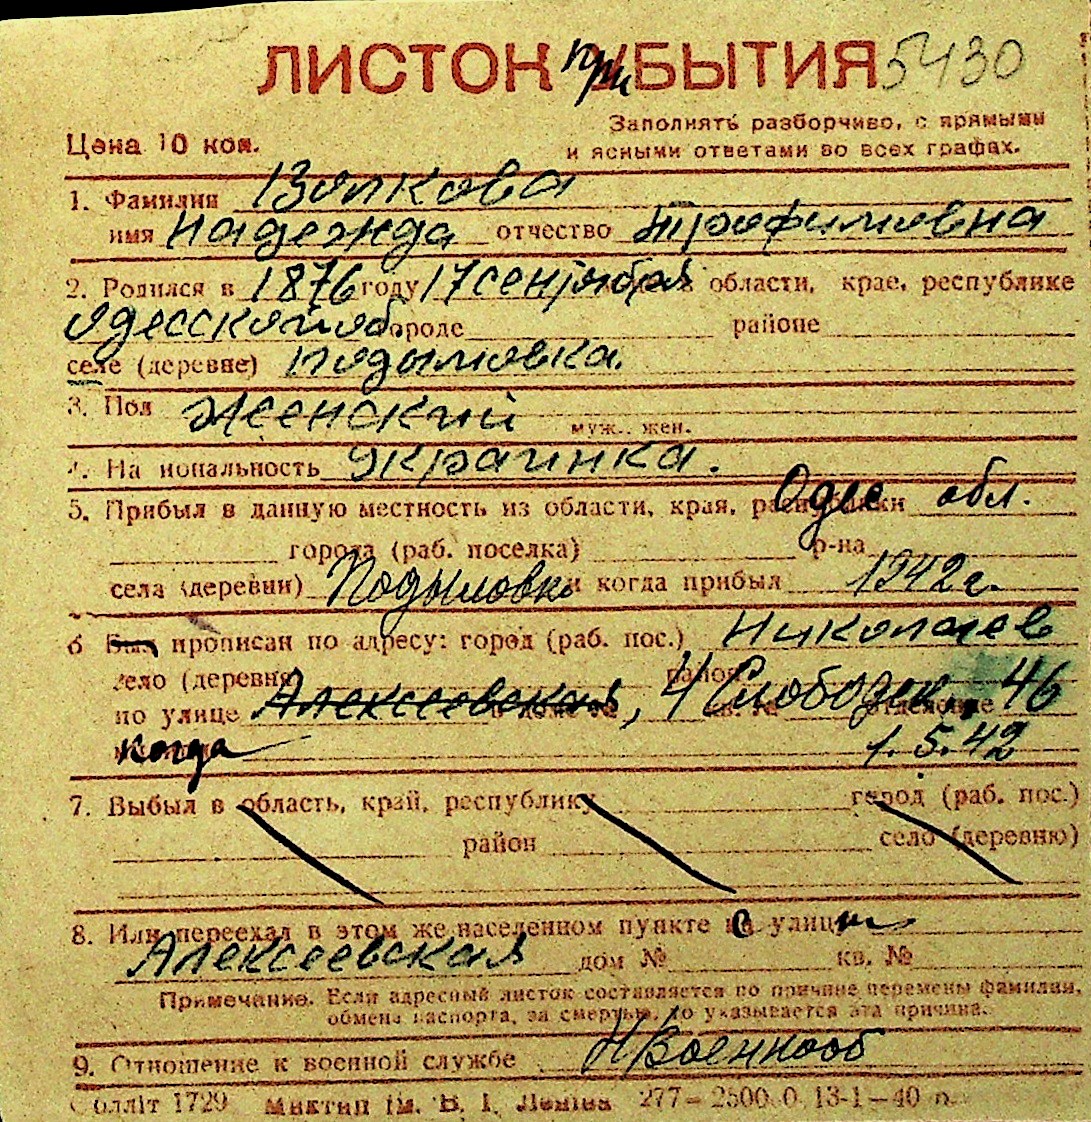 ЛИСТОК при УБЫТИЯ 5430
Цена 10 коп.
Заполнять разборчиво, с прямыми
и ясными ответами во всех графах.
1. Фамилия Волкова
имя Надежда отчество Трофимовна
2. Родился в 1876 году 17 сентября в области, крае, республике
Одесской об. городе районе
селе (деревне) Подымовка.
3. Пол Женский муж.. жен.
4. Национальность украинка.
5. Прибыл в данную местность из области, края, республики Одес обл.
города (раб. поселка) р-на
села (деревни) Подымовк и когда прибыл 1942 г.
6 Был прописан по адресу: город (раб. пос.) Николаев
село (деревня) район
по улице Алексеевская, 4 Слободск. 46
когда 1. 5. 42
7. Выбыл в область, край, республику город (раб. пос.)
район село (деревню)
8. Или переехал в этом же населенном пункте с улицы
Алексеевская дом № кв. №
Примечание. Если адресный листок составляется по причине перемены фамилии,
обмена паспорта, за смертью, то указывается эта причина.
9. Отношение к военной службе Н/Военнооб
Облліт 1729 Миктип ім. В. І. Леніна 277—2500.0. 13-1—40 п.